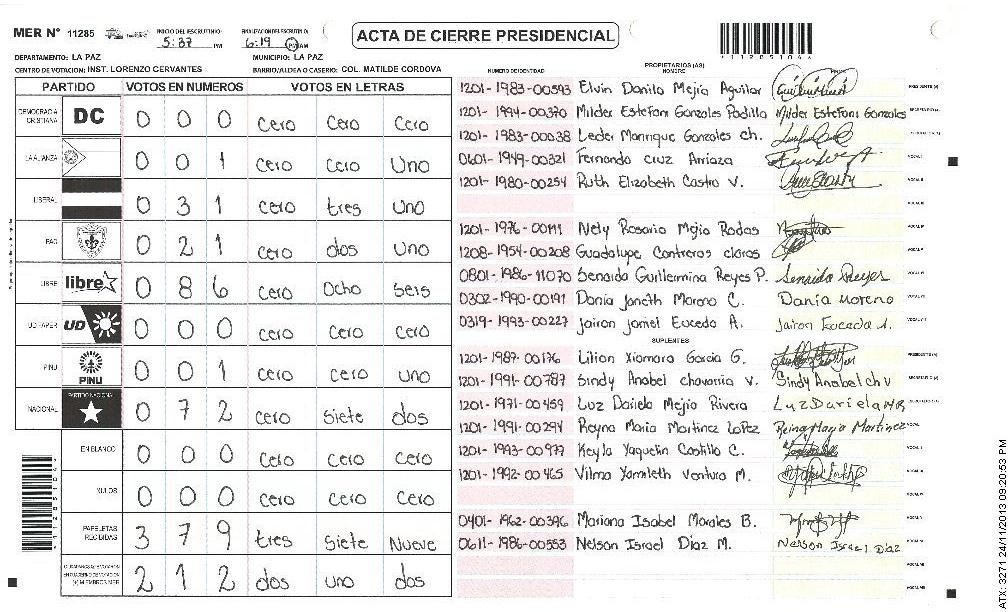 MER Nº 11285
INICIO DEL ESCRUTINIO
5:37 PM
FINALIZACION DEL ESCRUTINIO
6:19 PM AM
ACTA DE CIERRE PRESIDENCIAL
*11285104*
DEPARTAMENTO: LA PAZ
MUNICIPIO: LA PAZ
CENTRO DE VOTACION: INST. LORENZO CERVANTES
BARRIO/ALDEA O CASERIO: COL. MATILDE CORDOVA
PARTIDO VOTOS EN NUMEROS VOTOS EN LETRAS
DEMOCRACIA CRISTIANA DC 0 0 0 cero cero cero
LA ALIANZA 0 0 1 cero cero uno
LIBERAL 0 3 1 cero tres uno
PAC 0 2 1 cero dos uno
LIBRE libre 0 8 6 cero ocho seis
UD FAPER UD 0 0 0 cero cero cero
PINU PINU 0 0 1 cero cero uno
NACIONAL PARTIDO NACIONAL 0 7 2 cero siete dos
EN BLANCO 0 0 0 cero cero cero
NULOS 0 0 0 cero cero cero
PAPELETAS RECIBIDAS 3 7 9 tres siete nueve
2 1 2 dos uno dos
NUMERO DE IDENTIDAD PROPIETARIOS (AS) NOMBRE FIRMA
1201-1983-00593 Elvin Danilo Mejia Aguilar PRESIDENTE (A)
1201-1994-00370 Milder Estefani Gonzales Padilla Milder Estefani Gonzales SECRETARIO (A)
1201-1983-00038 Leder Manrique Gonzales ch.
0601-1949-00321 Fernando Cruz Arriaza VOCAL I
1201-1980-00254 Ruth Elizabeth Castro V. VOCAL II
VOCAL III
1201-1976-00111 Nely Rosario Mejia Rodas VOCAL IV
1208-1954-00208 Guadalupe Contreros claros VOCAL V
0801-1986-11070 Senaida Guillermina Reyes P. Senaida Reyes VOCAL VI
0302-1990-00191 Dania Janeth Moreno C. Dania Moreno VOCAL VII
0319-1993-00227 Jairon Jamiel Eucedo A. Jairon Euceda A. VOCAL VIII
SUPLENTES
1201-1987-00176 Lilian Xiomara Garcia G. PRESIDENTE (A)
1201-1991-00787 Sindy Anabel chavarria v. Sindy Anabel ch v SECRETARIO (A)
1201-1971-00459 Luz Dariela Mejia Rivera Luz Dariela M R
1201-1991-00294 Reyna Maria Martinez Lopez Reina Maria Martinez VOCAL I
1201-1993-00977 Keyla Yaquelin Castillo C. VOCAL II
1201-1992-00465 Vilma Yamileth Ventura M. VOCAL III
VOCAL IV
0401-1962-00396 Mariana Isabel Morales B. VOCAL V
0611-1986-00553 Nelson Israel Diaz M. Nelson Israel Diaz VOCAL VI
VOCAL VII
VOCAL VIII
ATX: 3271 24/11/2013 09:20:53 PM